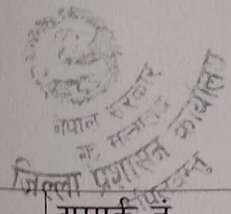 नेपाल सरकार
गृह मन्त्रालय
जिल्ला प्रशासन कार्यालय
सम्पर्क नं